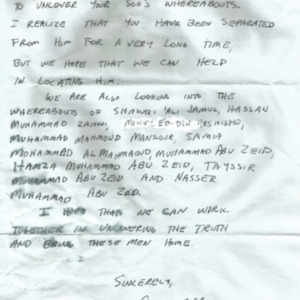 TO UNCOVER YOUR SON'S WHEREABOUTS.
I REALIZE THAT YOU HAVE BEEN SEPARATED
FROM HIM FOR A VERY LONG TIME,
BUT WE HOPE THAT WE CAN HELP
IN LOCATING HIM.
WE ARE ALSO LOOKING INTO THE
WHEREABOUTS OF SHAWQI 'ALI JAMUL, HASSAN
MUHAMMAD
MUHAMMAD MAHMOUD MANSOUR, SAMIH
MOHAMMAD AL MAHMAOUD, MUHAMMAD ABU ZEID,
HAMZA MOHAMMAD ABU ZEID, TAYSSIR
MUHAMMAD ABU ZEID AND NASSER
MUHAMMAD ABU ZEID.
I HOPE THAT WE CAN WORK
TOGETHER IN UNCOVERING THE TRUTH
AND BRING THESE MEN HOME.
SINCERELY,